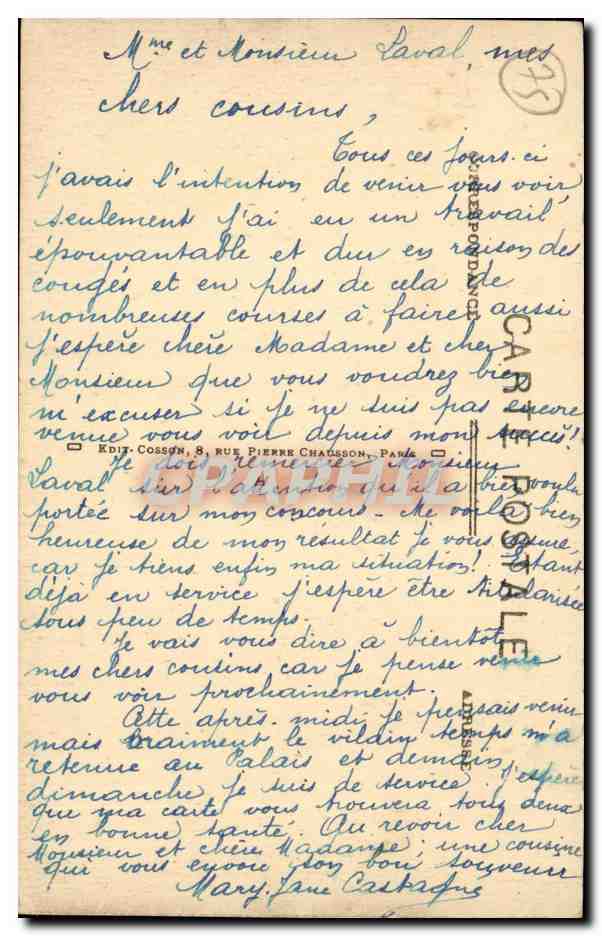 Mme et Monsieur Laval, mes
chers cousins,
Tous ces jours-ci
j'avais l'intention de venir vous voir,
seulement j'ai eu un travail
épouvantable et dur en raison des
congés et en plus de cela de
nombreuses courses à faire aussi
j'espère chère Madame et cher
Monsieur que vous voudrez bien
m'excuser si je ne suis pas encore
venue vous voir depuis mon succès!
Je dois remercier Monsieur
Laval sur l'attention qu'il a bien voulu
portée sur mon concours. Me voila bien
heureuse de mon résultat je vous assure,
car je tiens enfin ma situation! Etant
déjà en service j'espère être titularisée
sous peu de temps.
Je vais vous dire à bientôt
mes chers cousins car je pense venir
vous voir prochainement.
Cette après-midi je pensais venir
mais vraiment le vildin temps m'a
retenue au Palais et demain
dimanche je suis de service. j'espère
que ma carte vous trouvera tous deux
en bonne santé. Au revoir cher
Monsieur et chère Madame; une cousine
qui vous envoie son bon souvenir
Mary-Jane Castagné
75
CORRESPONDANCE
CARTE POSTALE
ADRESSE
EDIT. COSSON, 8, RUE PIERRE CHAUSSON, PARIS
CPARAMA